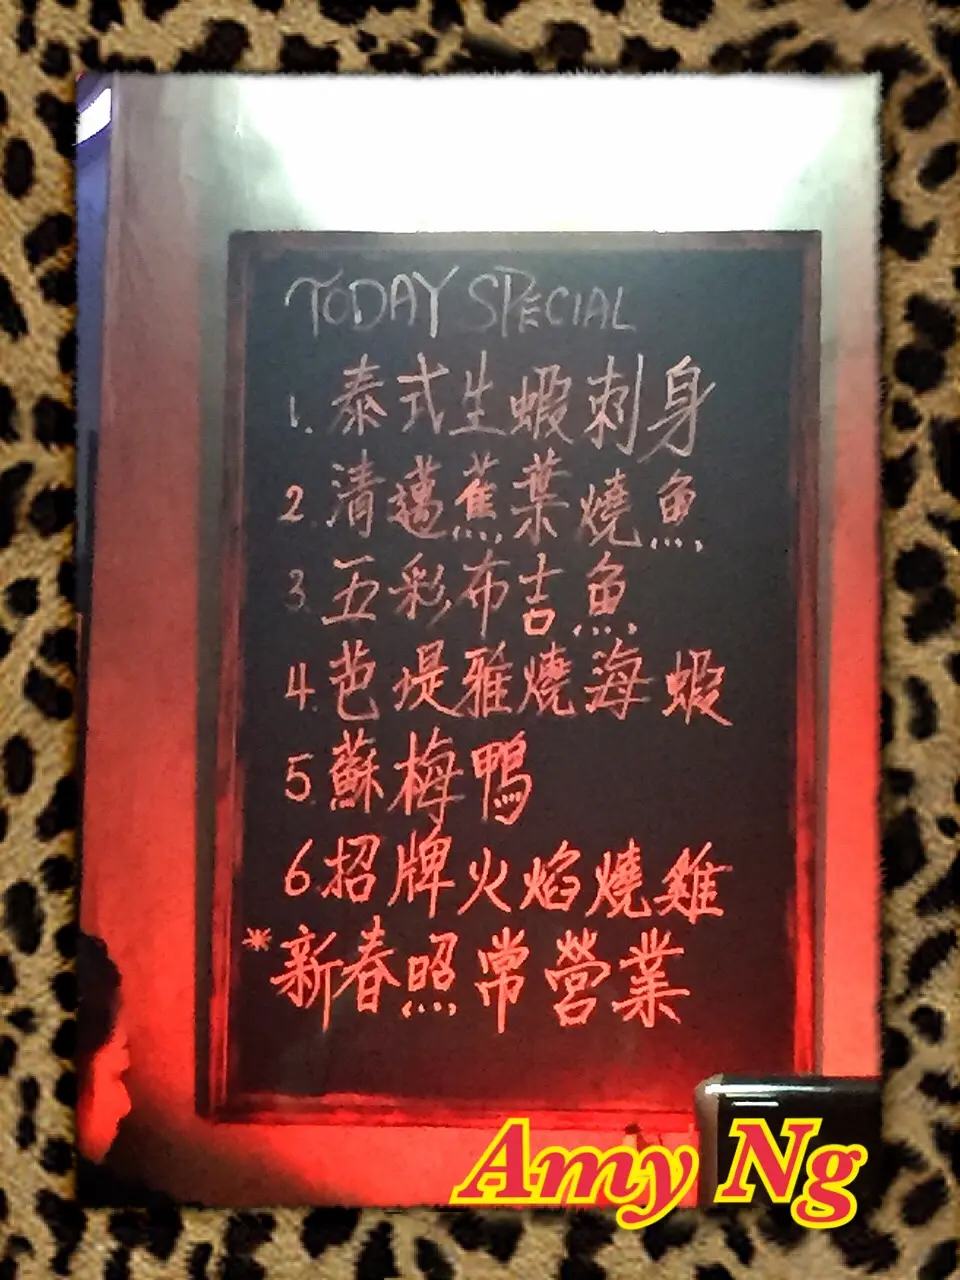 TODAY SPECIAL
1. 泰式生蝦刺身
2. 清邁蕉葉燒魚
3. 五彩布吉魚
4. 芭堤雅燒海蝦
5. 蘇梅鴨
6. 招牌火焰燒雞
*新春照常營業
Amy Ng